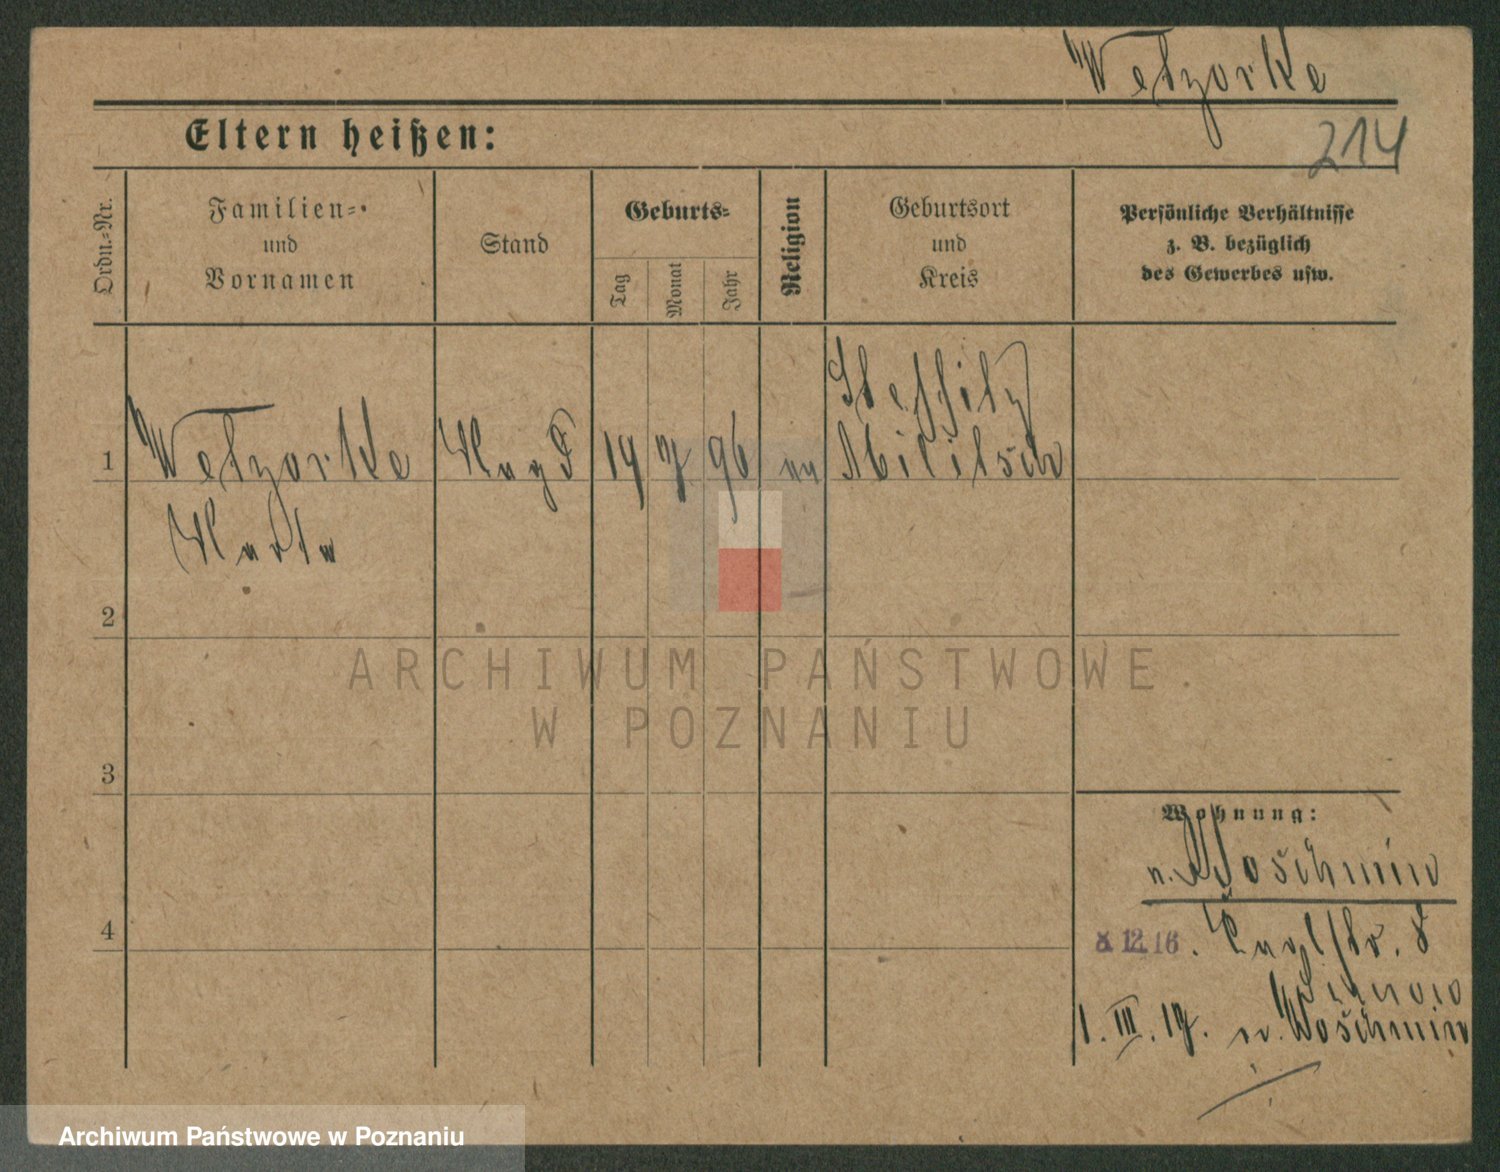 Wetzorke
214
Eltern heißen:
Ordn.-Nr.
Familien-
und
Vornamen
Stand
Geburts-
Tag
Monat
Jahr
Religion
Geburtsort
und
Kreis
Persönliche Verhältnisse
z. B. bezüglich
des Gewerbes usw.
1
Wetzorke
Magd
14
7
96
Militsch
2
3
4
ARCHIWUM PAŃSTWOWE
W POZNANIU
Wohnung:
n.
8.12.16.
8
1. III. 17. n.
Archiwum Państwowe w Poznaniu